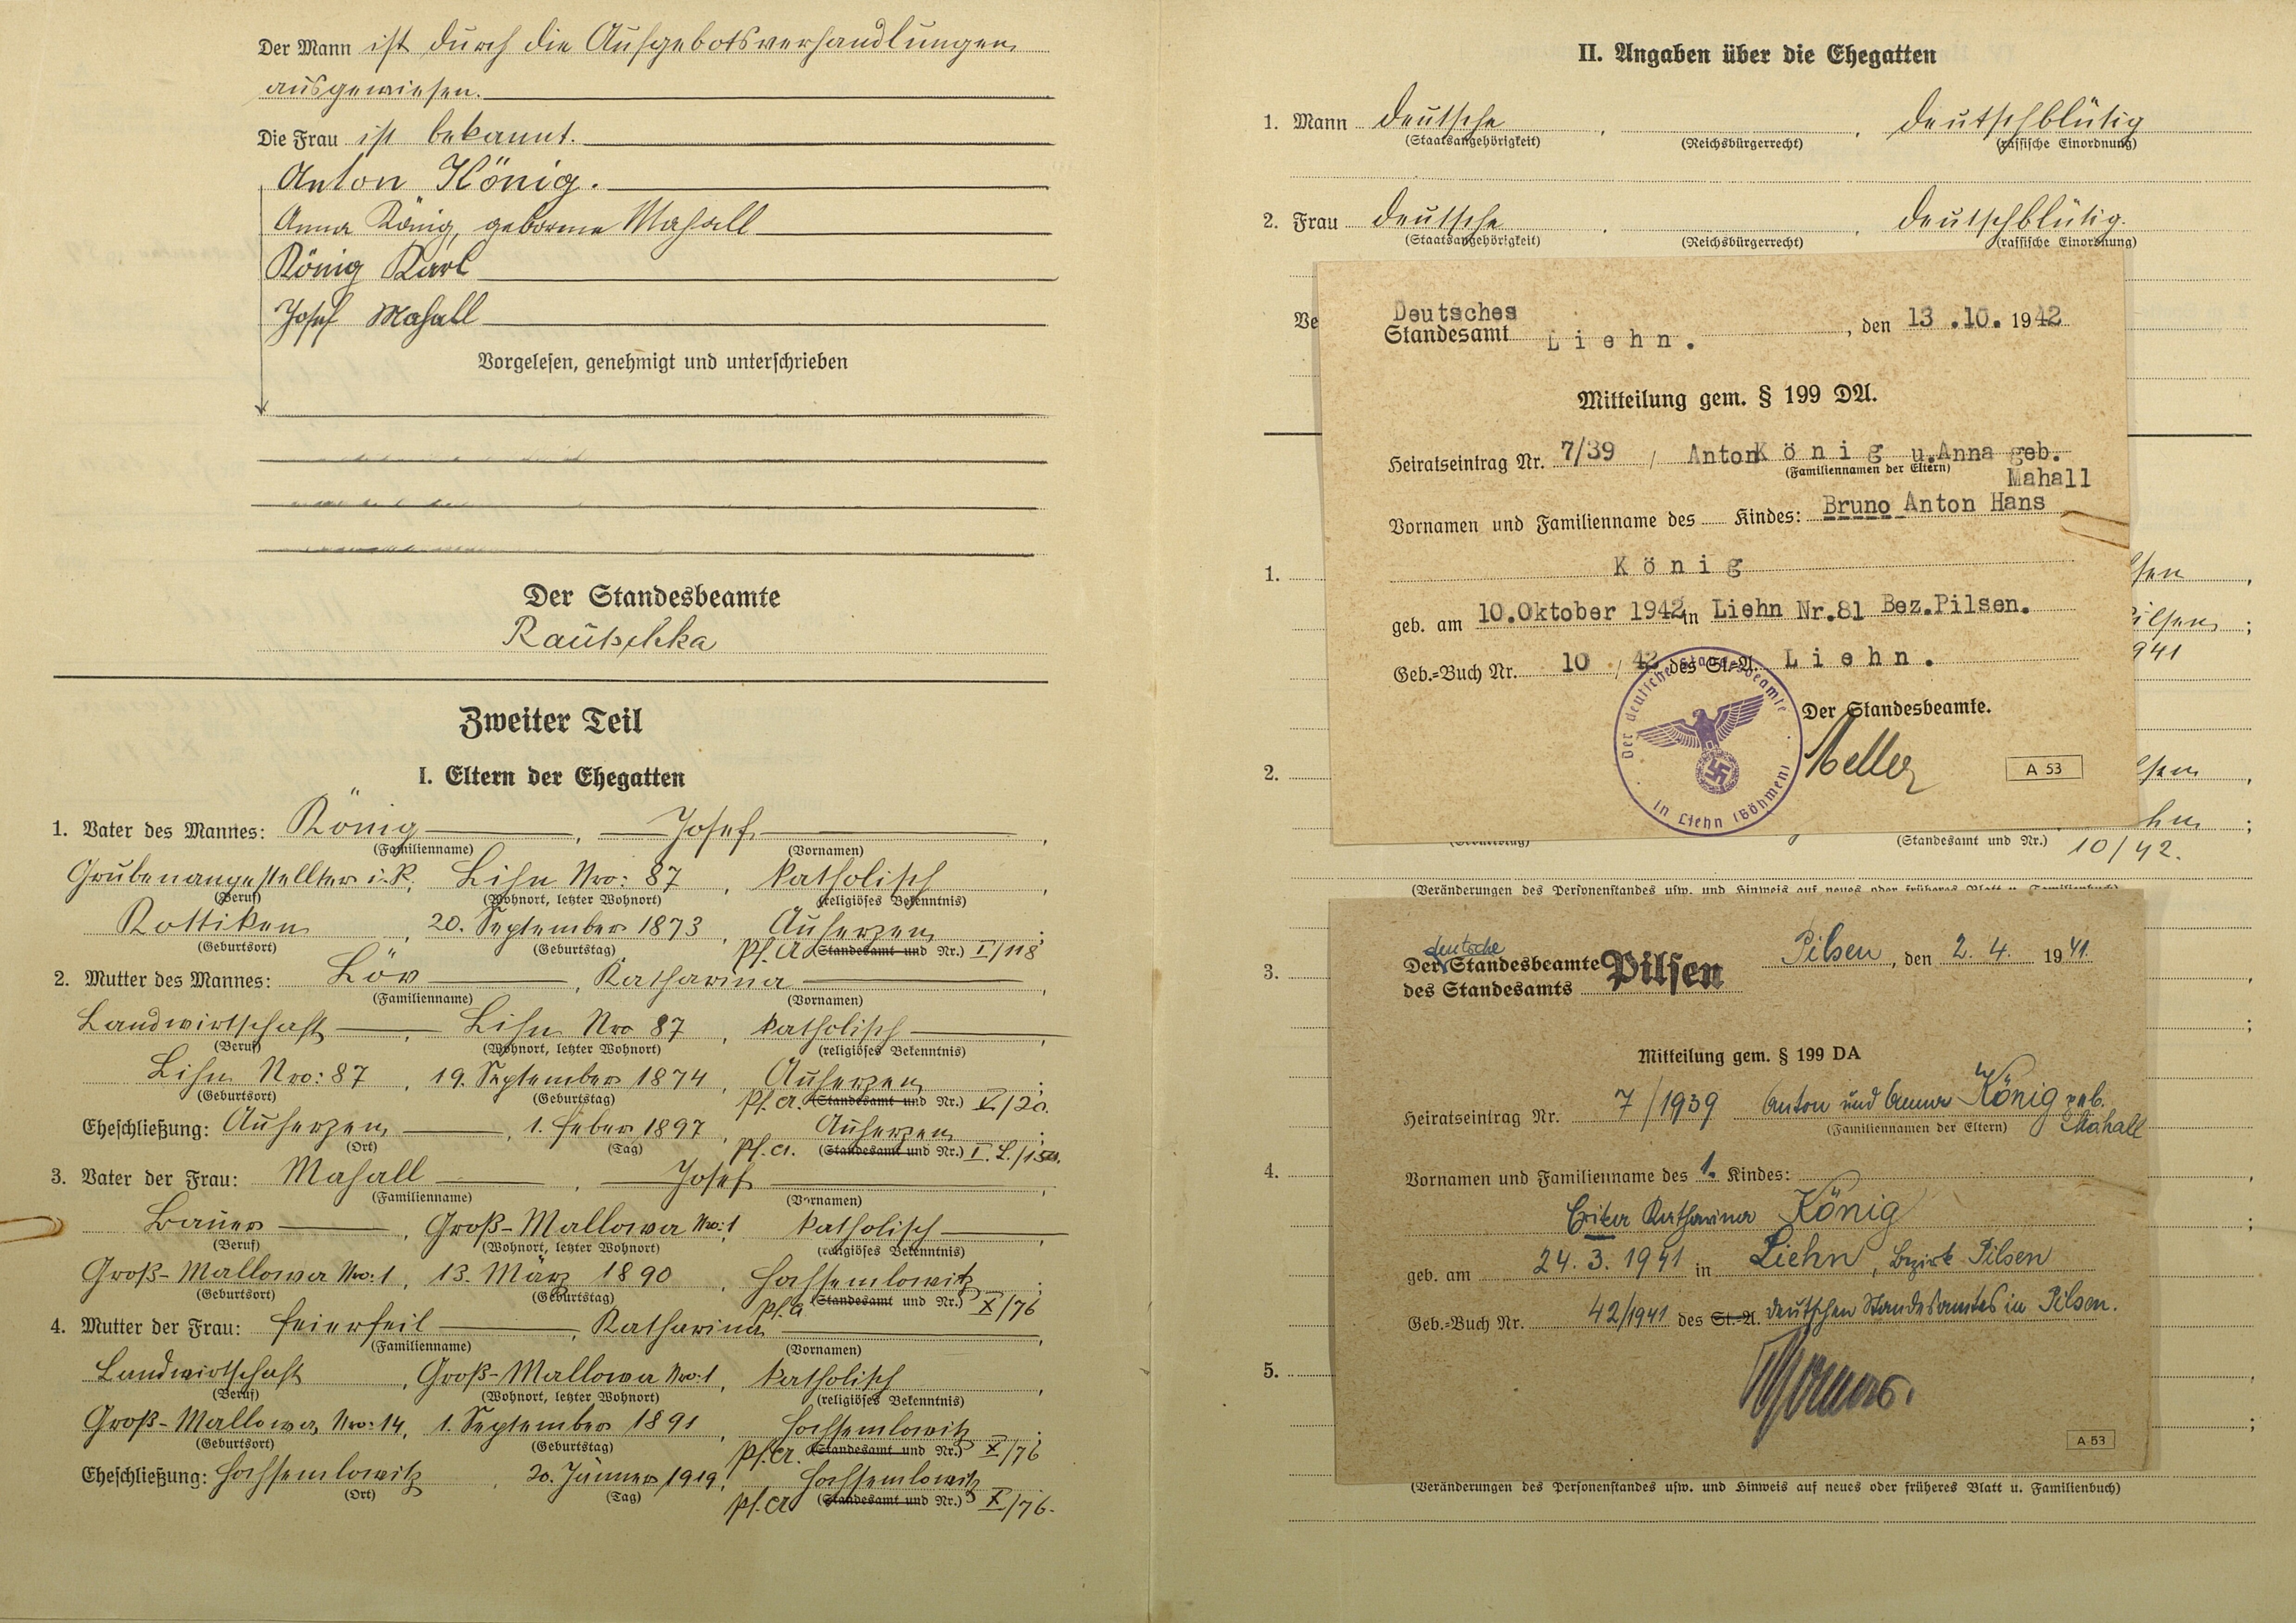 Der Mann ist durch die Aufgebotsverhandlungen
ausgewiesen.
Die Frau ist bekannt.
Anton König.
Anna König, geborene Mahall
König Karl
Josef Mahall
Vorgelesen, genehmigt und unterschrieben
Der Standesbeamte
Rautschka
Zweiter Teil
I. Eltern der Ehegatten
1. Vater des Mannes: König, Josef,
(Familienname) (Vornamen)
Grubenangestellter i. R., Lihn Nro: 87, katholisch,
(Beruf) (Wohnort, letzter Wohnort) (religiöses Bekenntnis)
Kottiken, 20. September 1873, Auherzen;
(Geburtsort) (Geburtstag) Pf. A. (Standesamt und Nr.) I/118
2. Mutter des Mannes: Löv, Katharina,
(Familienname) (Vornamen)
Landwirtschaft, Lihn Nro 87, katholisch,
(Beruf) (Wohnort, letzter Wohnort) (religiöses Bekenntnis)
Lihn Nro: 87, 19. September 1874, Auherzen;
(Geburtsort) (Geburtstag) Pf. A. (Standesamt und Nr.) V/20.
Eheschließung: Auherzen, 1. Feber 1897, Auherzen;
(Ort) (Tag) Pf. A. (Standesamt und Nr.)
3. Vater der Frau: Mahall, Josef,
(Familienname) (Vornamen)
Bauer, Groß-Mallowa Nro: 1, katholisch,
(Beruf) (Wohnort, letzter Wohnort) (religiöses Bekenntnis)
Groß-Mallowa Nro: 1, 13. März 1890, Hochsemlowitz;
(Geburtsort) (Geburtstag) Pf. A. (Standesamt und Nr.) X/76
4. Mutter der Frau: Feierfeil, Katharina,
(Familienname) (Vornamen)
Landwirtschaft, Groß-Mallowa Nro: 1, katholisch,
(Beruf) (Wohnort, letzter Wohnort) (religiöses Bekenntnis)
Groß-Mallowa, Nro: 14, 1. September 1891, Hochsemlowitz;
(Geburtsort) (Geburtstag) Pf. A. (Standesamt und Nr.) X/76
Eheschließung: Hochsemlowitz, 20. Jänner 1919, Hochsemlowitz;
(Ort) (Tag) Pf. A. (Standesamt und Nr.) X/76.
II. Angaben über die Ehegatten
1. Mann deutsche, , deutschblütig
(Staatsangehörigkeit) (Reichsbürgerrecht) (rassische Einordnung)
2. Frau deutsche, , deutschblütig.
(Staatsangehörigkeit) (Reichsbürgerrecht) (rassische Einordnung)
Ve
Deutsches
Standesamt Liehn., den 13.10.1942
Mitteilung gem. § 199 DA.
Heiratseintrag Nr. 7/39 / Anton König u.Anna geb.
(Familiennamen der Eltern) Mahall
Vornamen und Familienname des Kindes: Bruno Anton Hans
König
geb. am 10.Oktober 1942 in Liehn Nr.81 Bez.Pilsen.
Geb.-Buch Nr. 10 / 42 des St.-A. Liehn.
Der Standesbeamte.
Der deutsche Standesbeamte
in Liehn (Böhmen)
A 53
1.
lsen,
ilsen;
941
2.
lsen,
hn;
(Standesamt und Nr.) 10/42.
(Veränderungen des Personenstandes usw. und Hinweis auf neues oder früheres Blatt u. Familienbuch)
3.
Der deutsche Standesbeamte
des Standesamts Pilsen
Pilsen, den 2. 4. 1941.
Mitteilung gem. § 199 DA
Heiratseintrag Nr. 7/1939 Anton und Anna König geb.
(Familiennamen der Eltern) Mahall
4.
Vornamen und Familienname des 1. Kindes:
Erika Katharina König
geb. am 24. 3. 1941 in Liehn, Bezirk Pilsen
Geb.-Buch Nr. 42/1941 des St.-A. deutschen Standesamtes in Pilsen.
5.
A 53
(Veränderungen des Personenstandes usw. und Hinweis auf neues oder früheres Blatt u. Familienbuch)